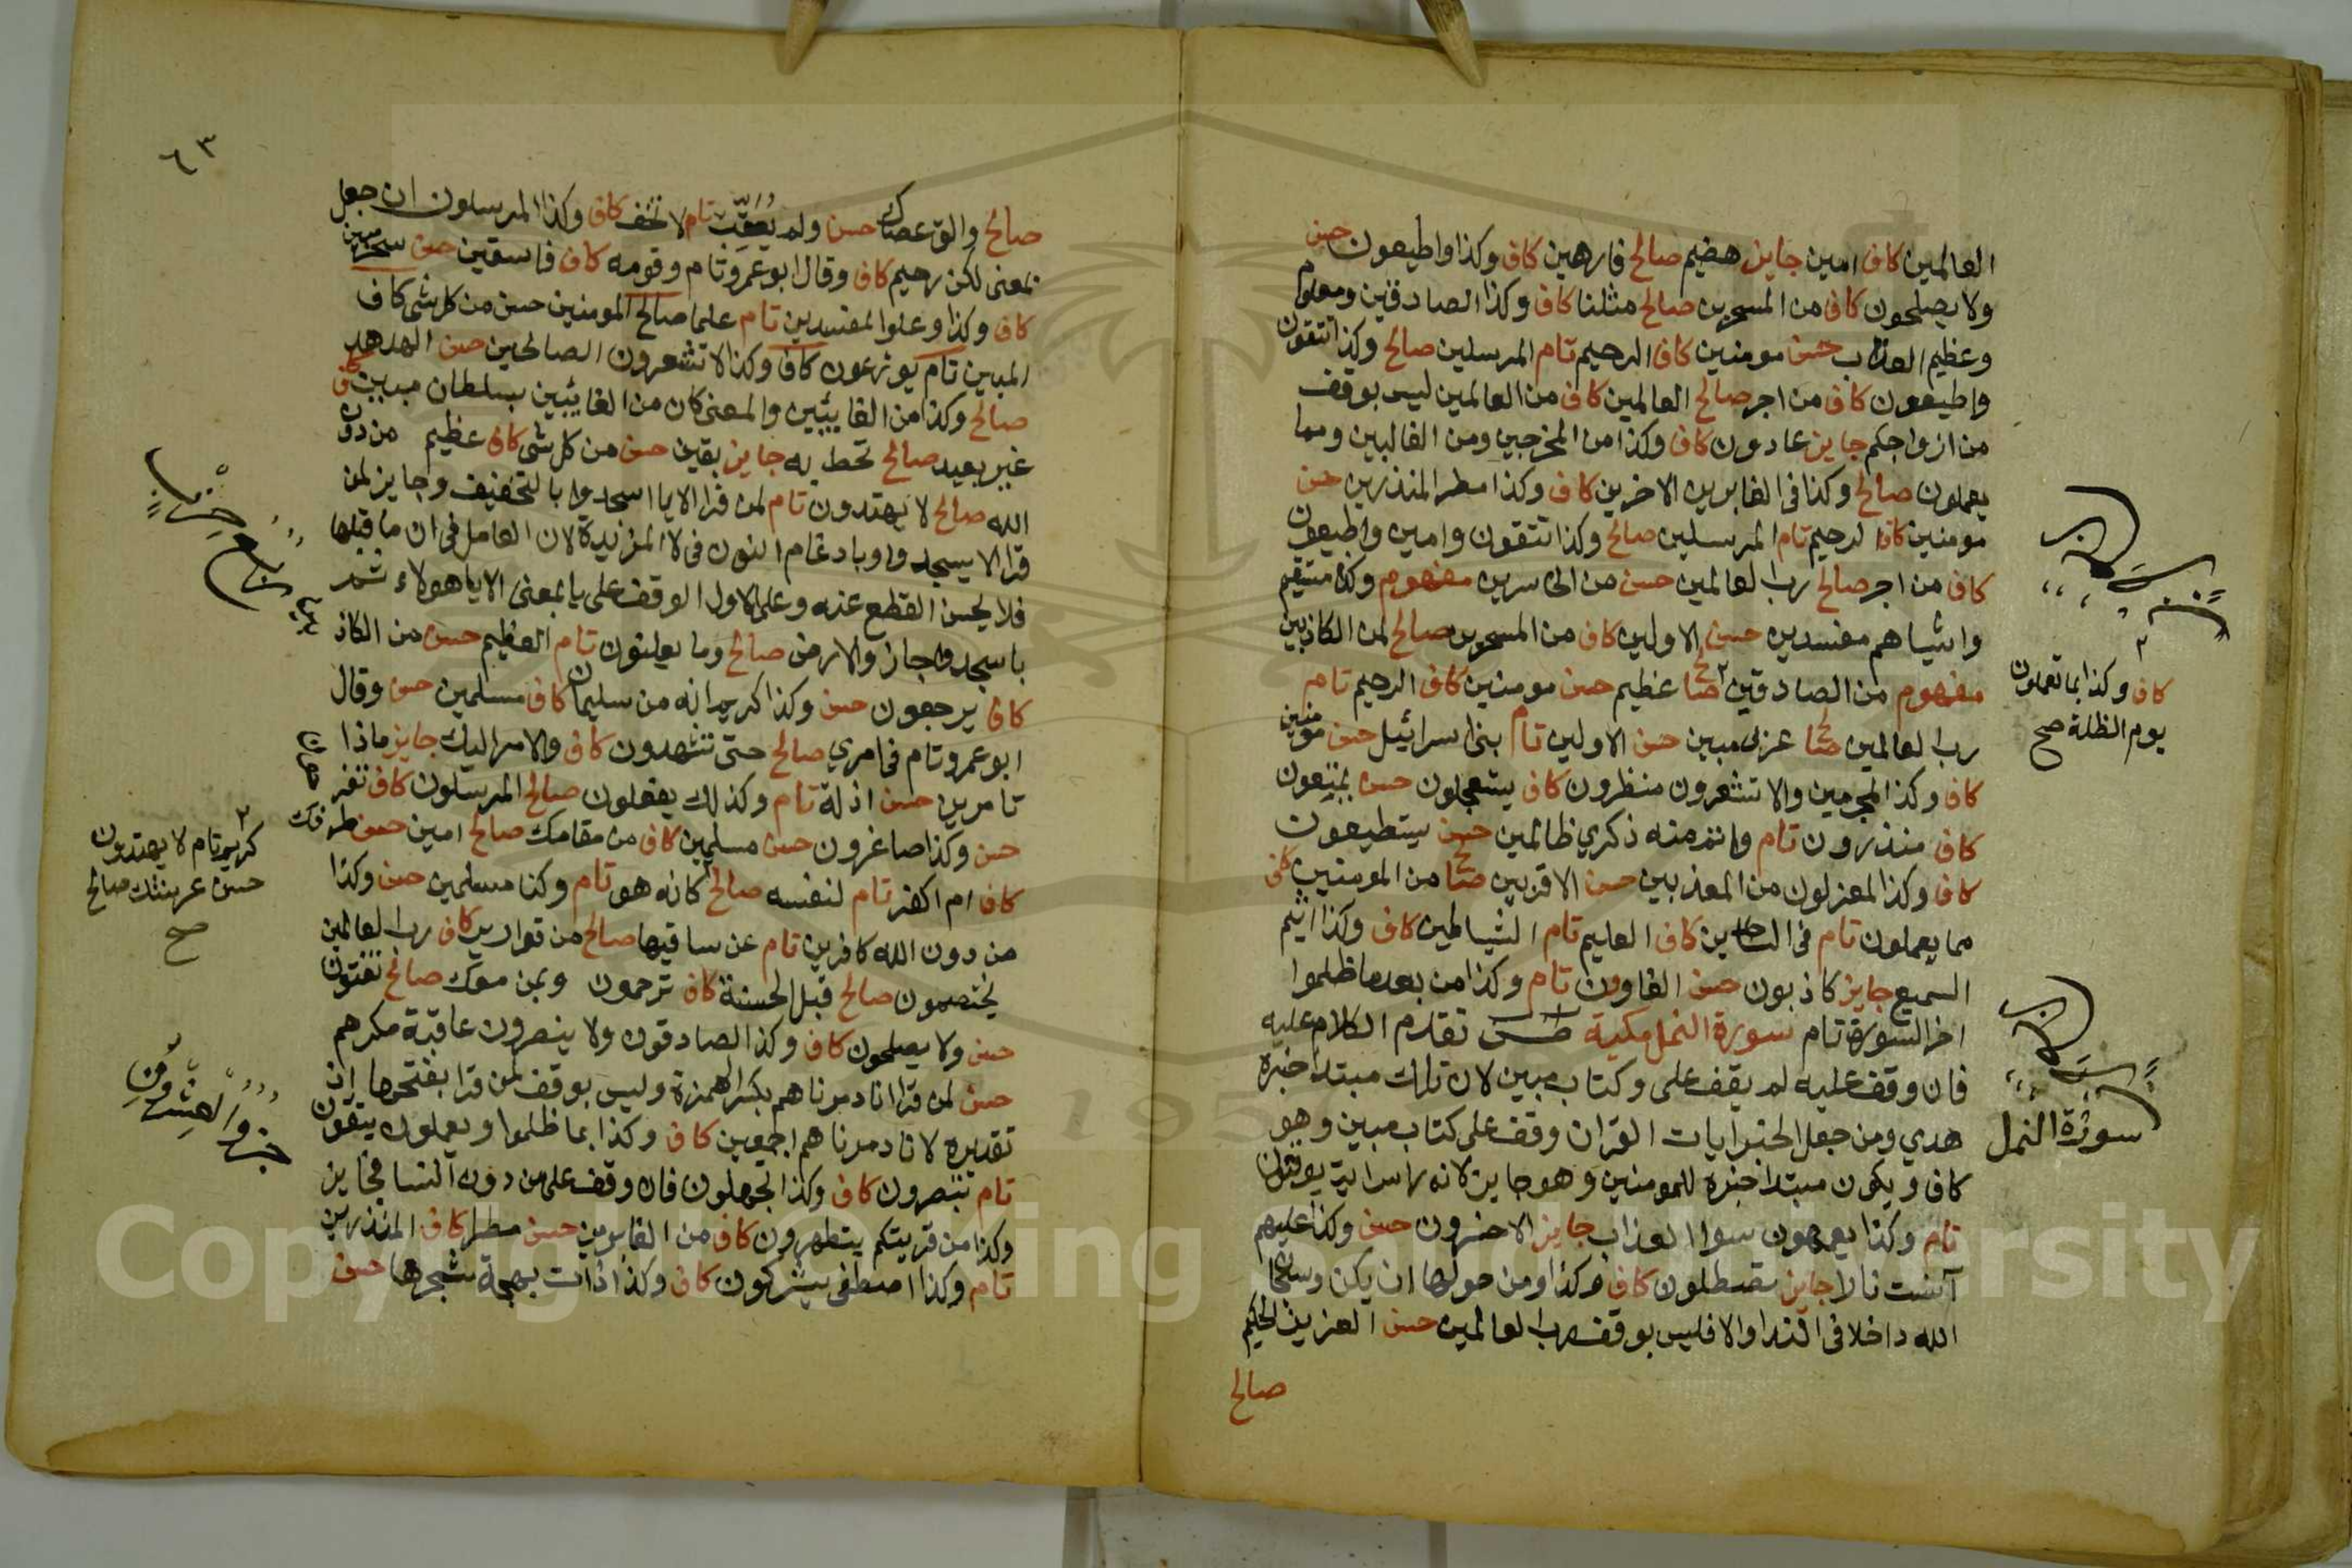 العالمين كاف امين جايز هضيم صالح فارهين كاف وكذا واطيعون حسن
ولا يصلحون كاف من المسحرين صالح مثلنا كاف وكذا الصادقين ومعلوم
وعظيم العذاب حسن مومنين كاف الرحيم تام المرسلين صالح وكذا تتقون
واطيعون كاف من اجر صالح العالمين كاف من العالمين ليس بوقف
من ازواجكم جايز عادون كاف وكذا من المخرجين ومن القالين ومما
يعملون صالح وكذا في الغابرين الاخرين كاف وكذا مطر المنذرين حسن
مومنين كاف الرحيم تام المرسلين صالح وكذا تتقون وامين واطيعون
كاف من اجر صالح رب العالمين حسن من المخاسرين مفهوم وكذا مستقيم
واشياهم مفسدين حسن الاولين كاف من المسحرين صالح لمن الكاذبين
مفهوم من الصادقين عظيم حسن مومنين كاف الرحيم تام
رب العالمين صالح عربي مبين حسن الاولين تام بني اسرائيل حسن مومنين
كاف وكذا المجرمين والا تشعرون منظرون كاف يستعجلون حسن يمتعون
كاف منذرون تام وانمزمنه ذكري ظالمين حسن يستطيعون
كاف وكذا المعزلون من المعذبين حسن الاقربين صالح من المومنين كاف
مما يعملون تام في الساجدين كاف العليم تام الشياطين كاف وكذا اثيم
السميع جايز كاذبون حسن الغاوون تام وكذا من بعد ما ظلموا
اخر السورة تام سورة النمل مكية طس تقدم الكلام عليه
فان وقف عليه لم يقف على وكتاب مبين لان تلك مبتدا خبره
هدي ومن جعل الخبر ايات القران وقف على كتاب مبين وهو
كاف ويكون مبتدا خبره للمومنين وهو جايز لانه راس اية يوقنون
تام وكذا يعمهون سوا العذاب جايز الاخسرون حسن وكذا عليهم
آنست نارا جايز تصطلون كاف وكذا ومن حولها ان يكن وسبحان
الله داخلا في الندا والا فليس بوقف رب العالمين حسن العزيز الحكيم
صالح
كاف وكذا بما تعملون
يوم الظلة صح
سورة النمل
٦٣
صالح والق عصاك حسن ولم يعقب تام لا تخف كاف وكذا المرسلون ان جعل
بمعنى لكن رحيم كاف وقال ابو عمرو تام وقومه كاف فاسقين حسن سحر مبين
كاف وكذا وعلوا المفسدين تام علما صالح المومنين حسن من كل شي كاف
المبين تام يوزعون كاف وكذا لا تشعرون الصالحين حسن الهدهد
صالح وكذا من الغايبين والمعنى كان من الغائبين بسلطان مبين كاف
غير بعيد صالح تحط به جايز يقين حسن من كل شي كاف عظيم من دون
الله صالح لا يهتدون تام لمن قرا الا يا اسجدوا بالتخفيف وجايز لمن
قرا الا يسجدوا وبادغام النون في لا المزيدة لان العامل في ان ما قبلها
فلا يحسن القطع عنه وعلى الاول الوقف على يا بمعنى الا يا هولاء ثم
يا سجدوا جاز والارض صالح وما يعلنون تام العظيم حسن من الكاذ
كاف يرجعون حسن وكذا كريم انه من سليمان كاف مسلمين حسن وقال
ابو عمرو تام في امري صالح حتى تشهدون كاف والامر اليك جايز ماذا
تامرين حسن اذلة تام وكذلك يفعلون صالح المرسلون كاف تفر
حسن وكذا صاغرون حسن مسلمين كاف من مقامك صالح امين حسن طرفك
كاف ام اكفر تام لنفسه صالح كانه هو تام وكنا مسلمين حسن وكذا
من دون الله كافرين تام عن ساقيها صالح من قوارير كاف رب العالمين
يختصمون صالح قبل الحسنة كاف ترحمون وبمن معك صالح تفتنون
حسن ولا يصلحون كاف وكذا لصادقون ولا ينصرون عاقبة مكرهم
حسن لمن قرا انا دمرناهم بكسر الهمزة وليس بوقف لمن قرا بفتحها اذ
تقديره لانا دمرناهم اجمعين كاف وكذا بما ظلموا ويعملون يتقون
تام تبصرون كاف وكذا تجهلون فان وقف على من دون النسا فجايز
وكذا من قريتكم يتطهرون كاف من الغابرين حسن مطرا كاف المنذرين
تام وكذا اصطفى يشركون كاف وكذا ذات بهجة شجرها حسن
كريم تام لا يهتدون
حسن عرشك صالح
صح
Copyright © King Saud University
1957